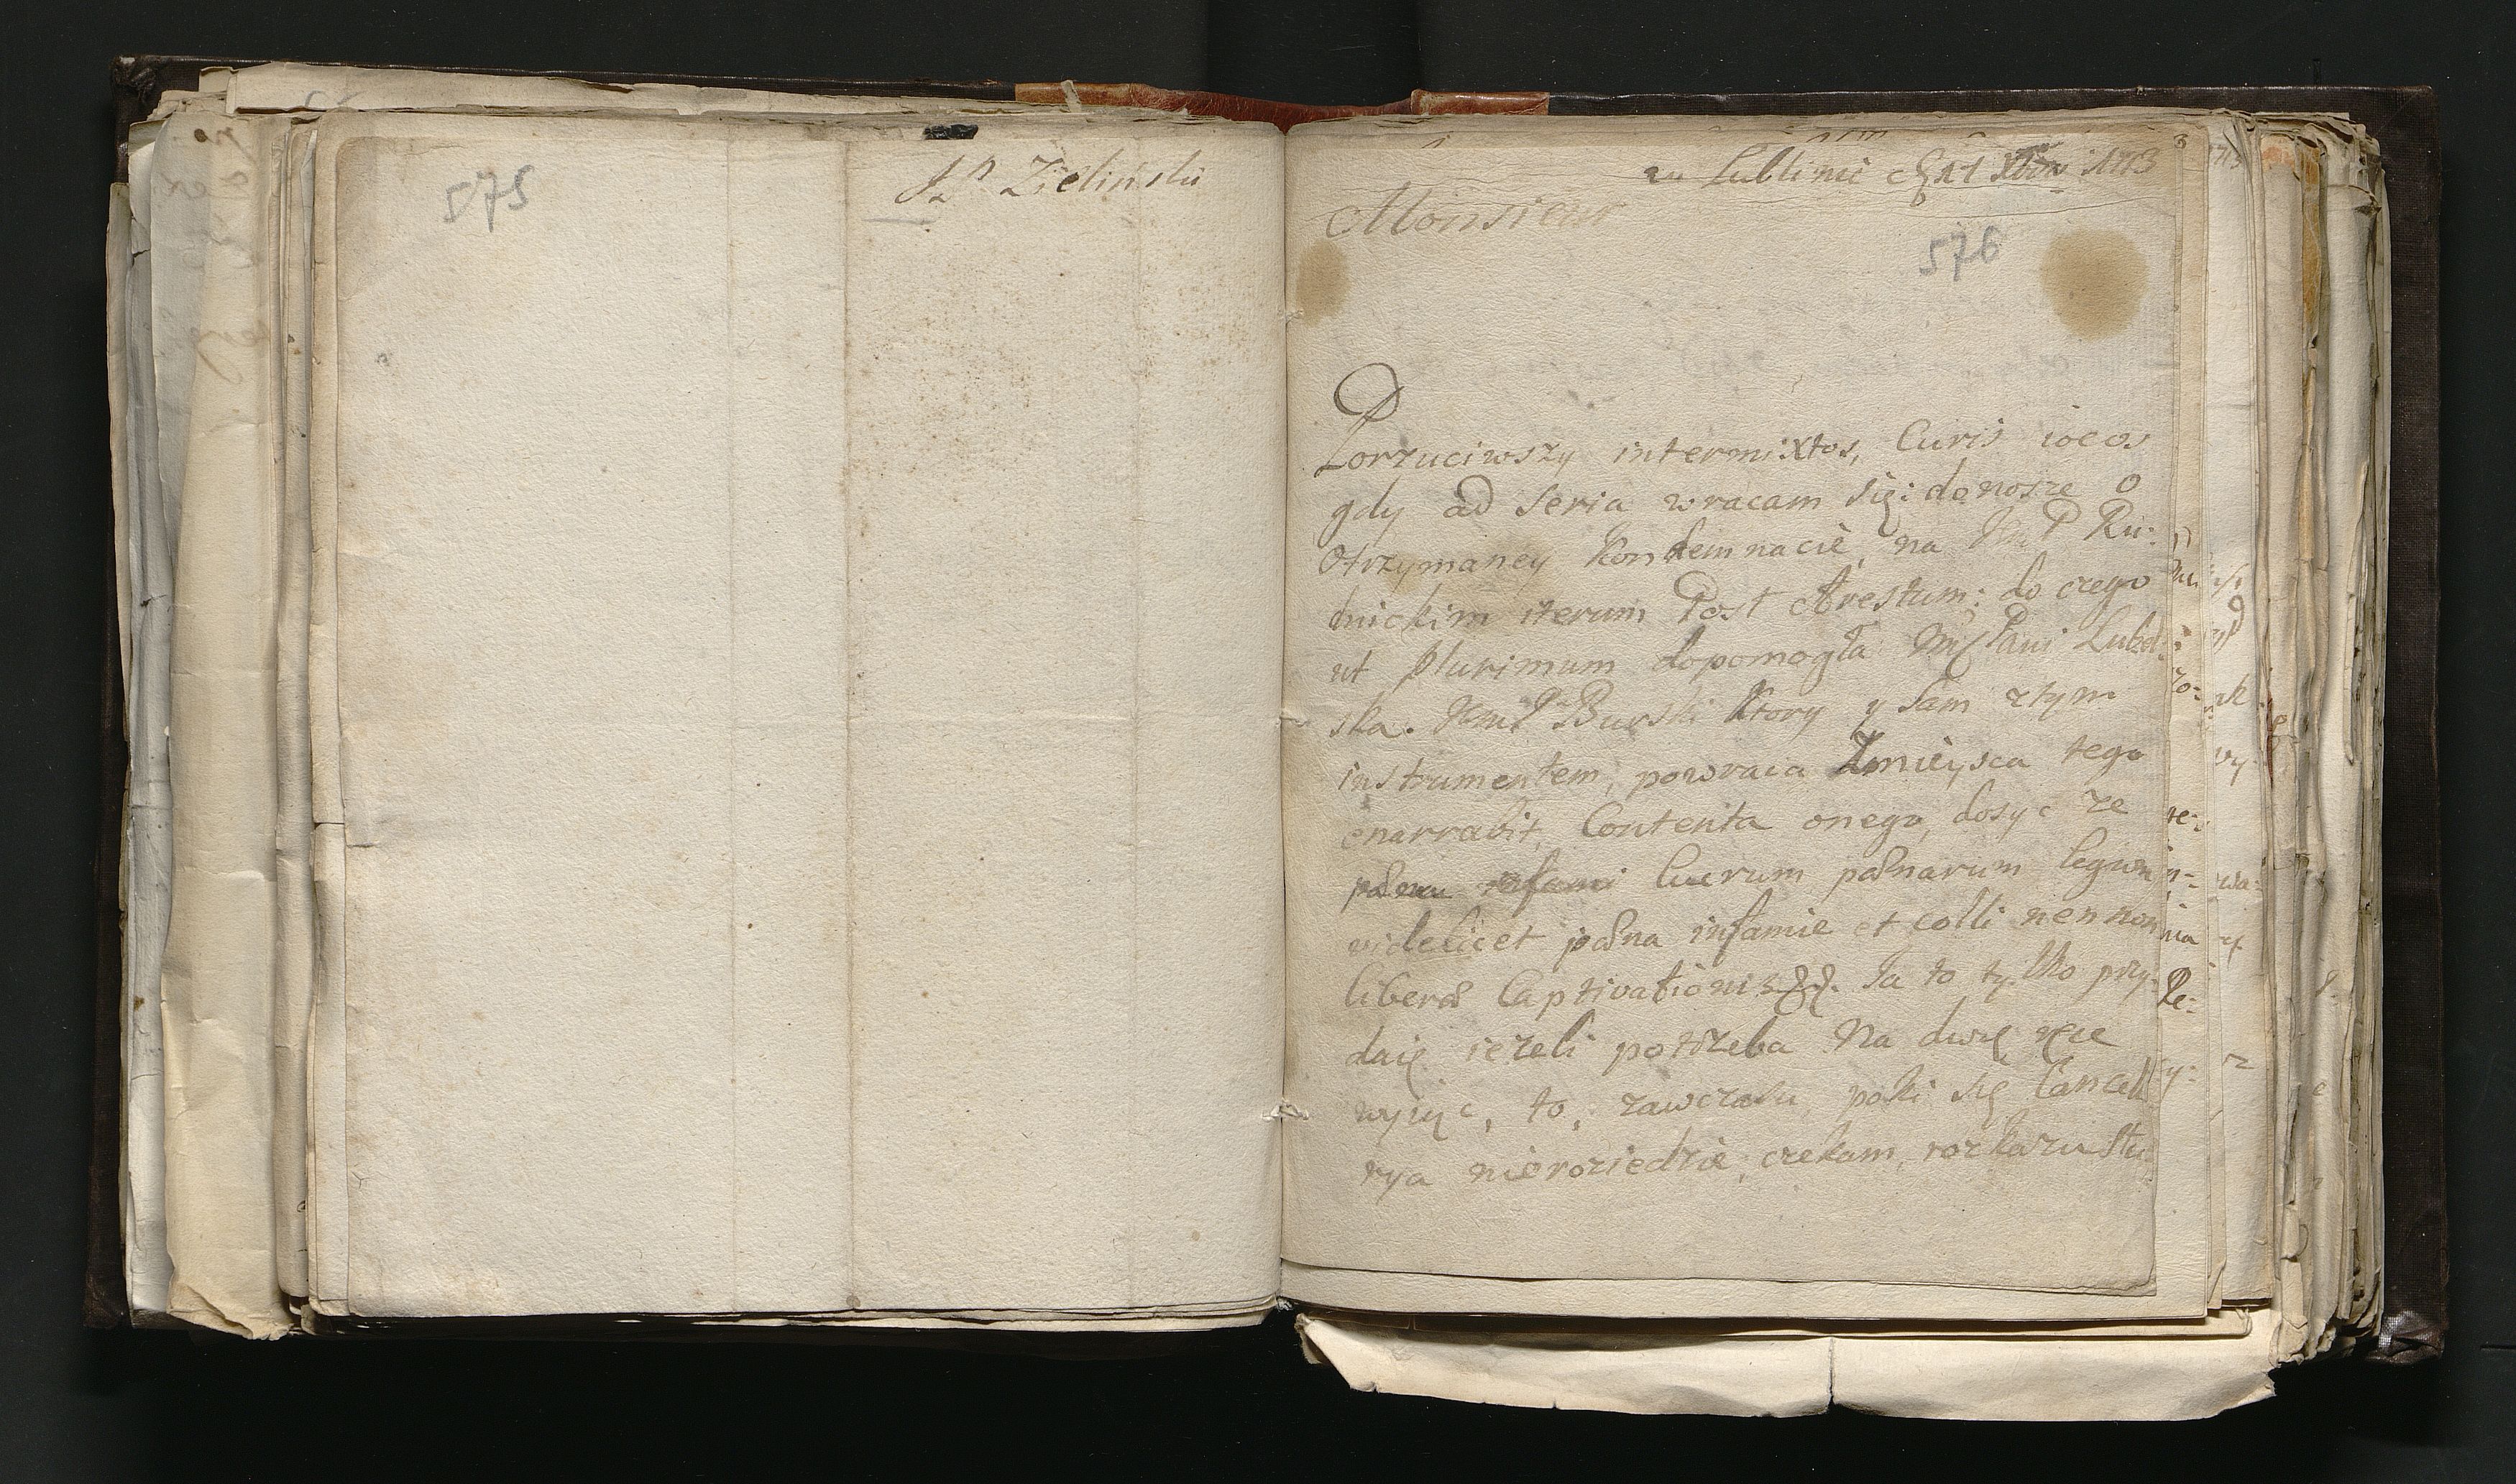 575
JP Zieliński
w Lublinie 21 Xbra 1713
Monsieur
576
Porzuciwszy intermixtos, Curis iocos
gdy ad seria wracam się: donoszę o
Otrzymaney Kondemnacie, na JmP Ru:
dnickim iterum Post Arestum: do czego
ut plurimum dopomogła Pani Lubel:
ska. JmP Burski Ktory y sam z tym
instrumentem, powraca Zmieysca tego
enarrabit, Contenta onego, dosyc ze
luerum pænarum legum
videlicet pæna infamie et colli nen non
liberæ Captivationis. Ja to tylko przy:
daię iezeli potrzeba Na dwę ręce
wyiąc, to, zawczasu, poki się Cancell
rya nieroziedzie, czekam, rozkazu Słu